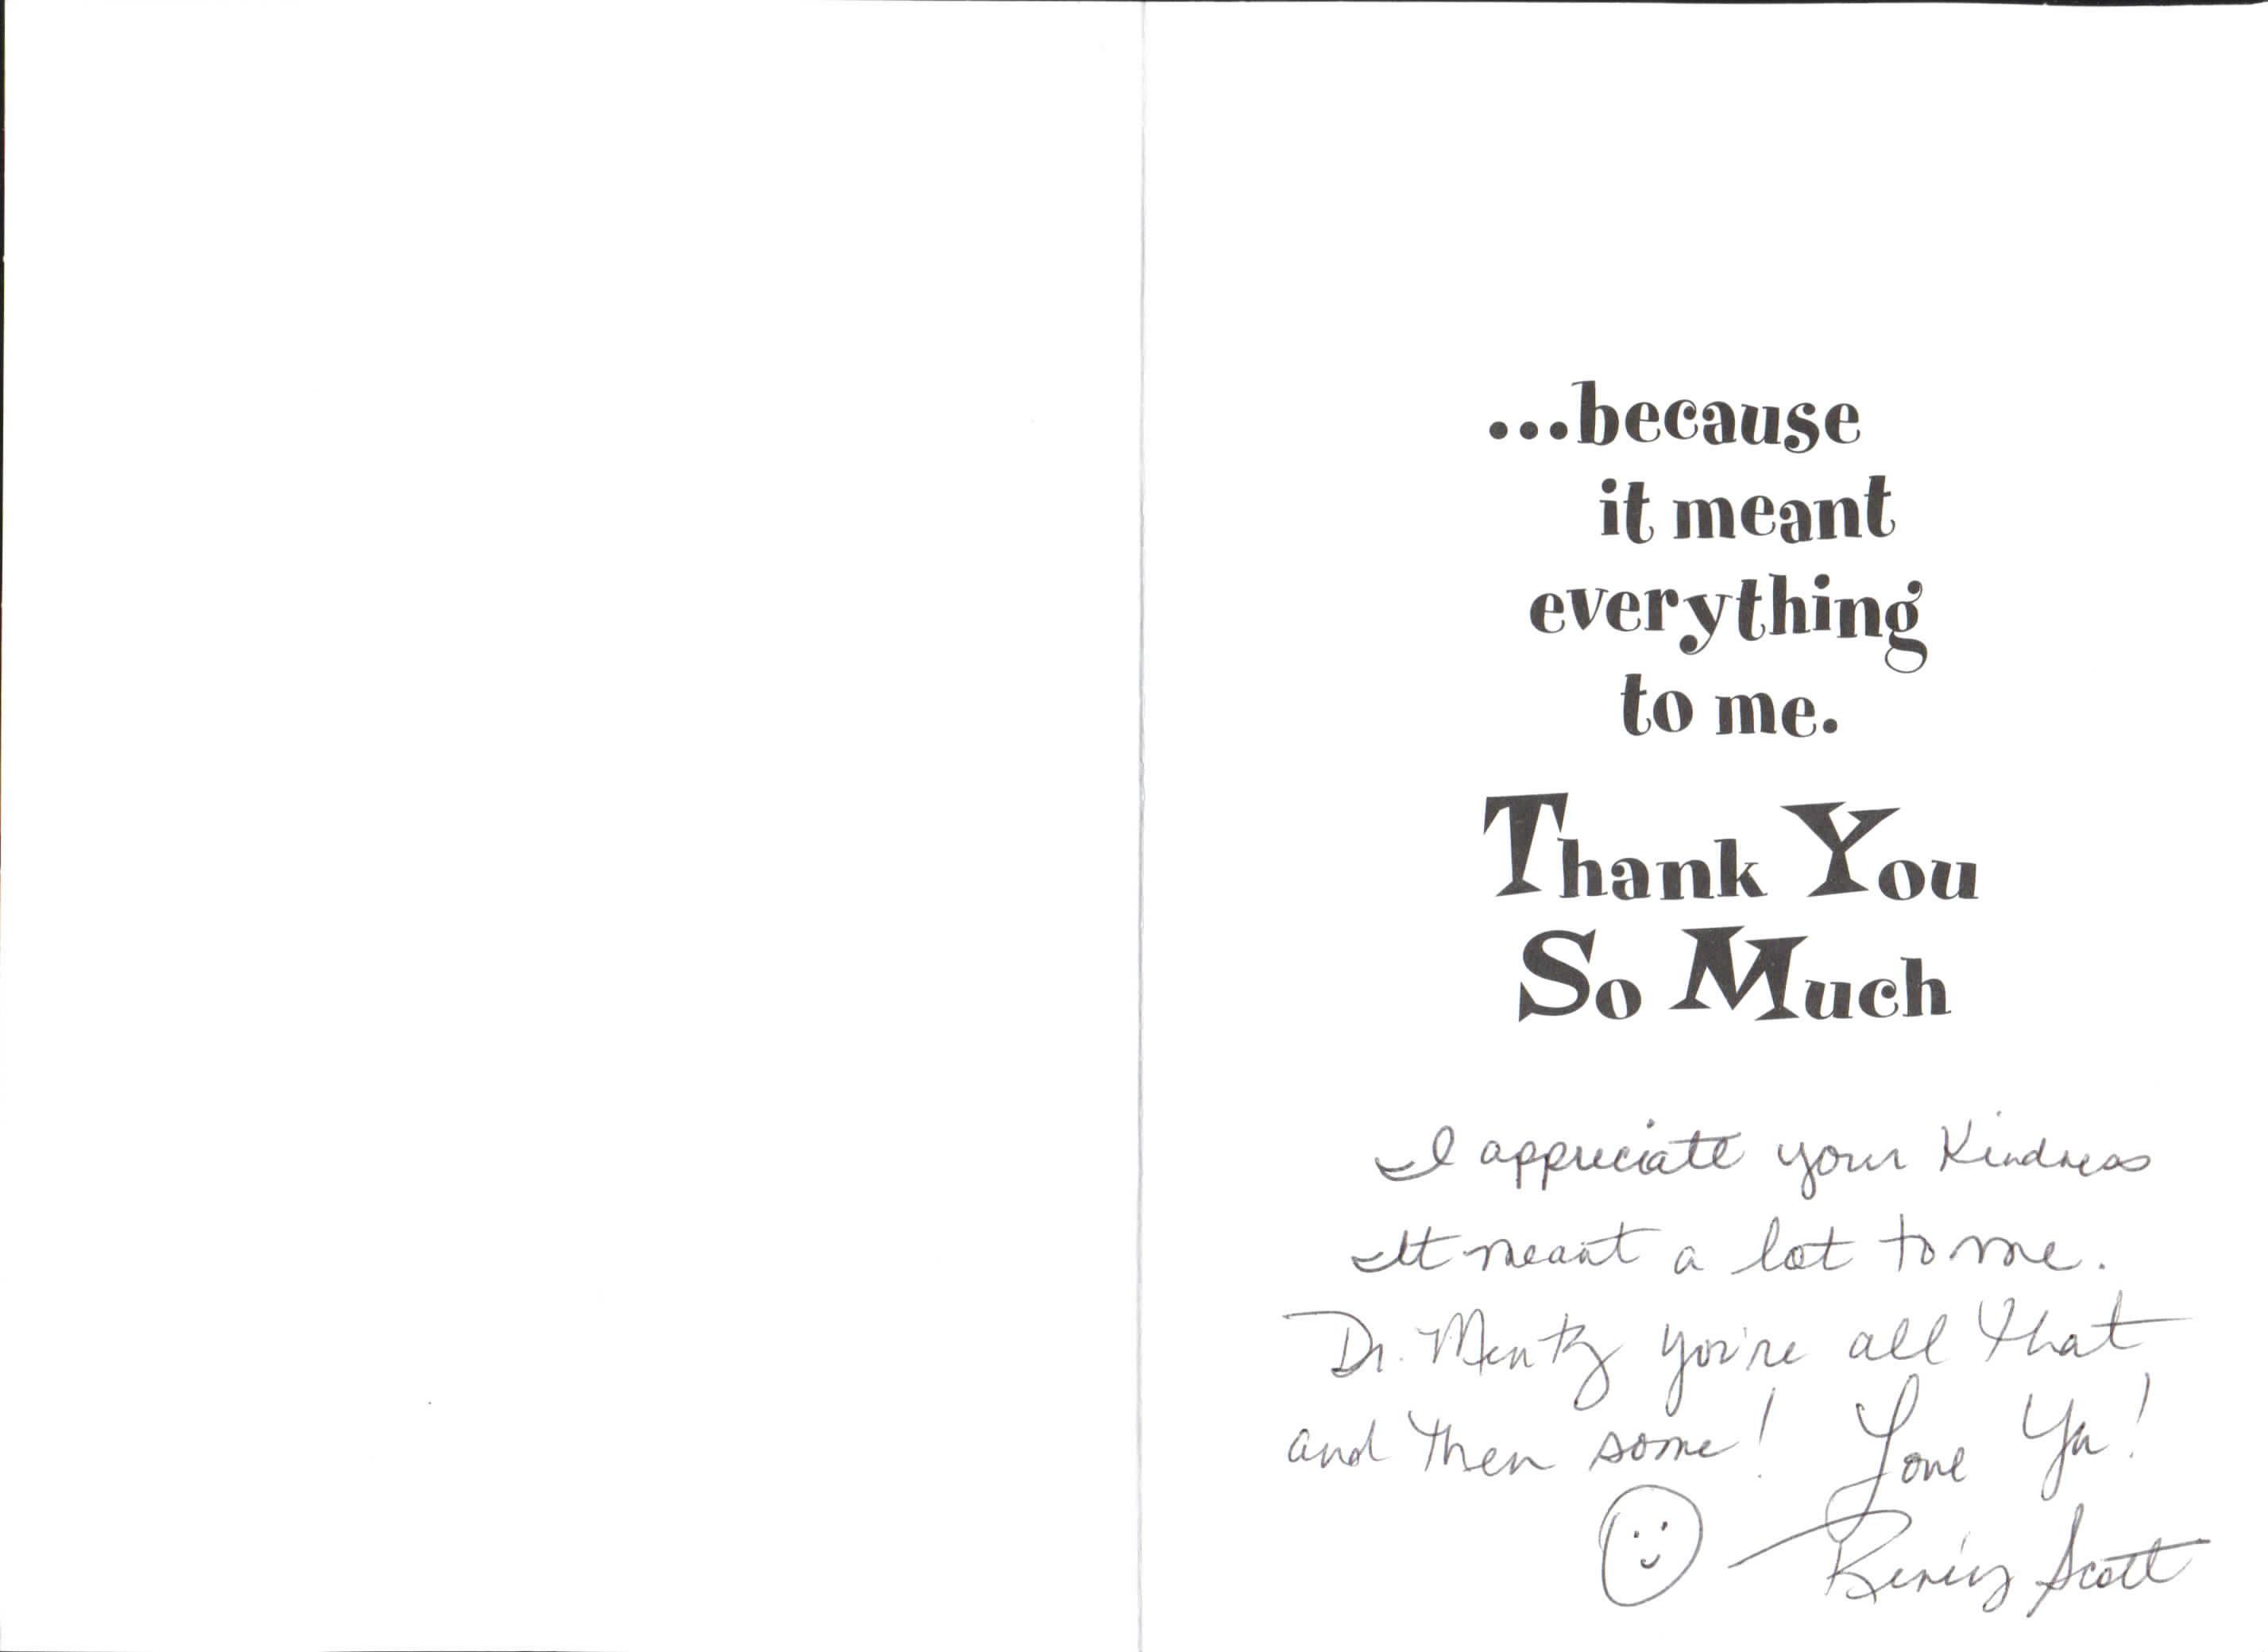 ...because
it meant
everything
to me.
Thank You
So Much
I appreciate your Kindness
It meant a lot to me.
Dr. Mentz you're all that
and then some! Love Ya!
Scott